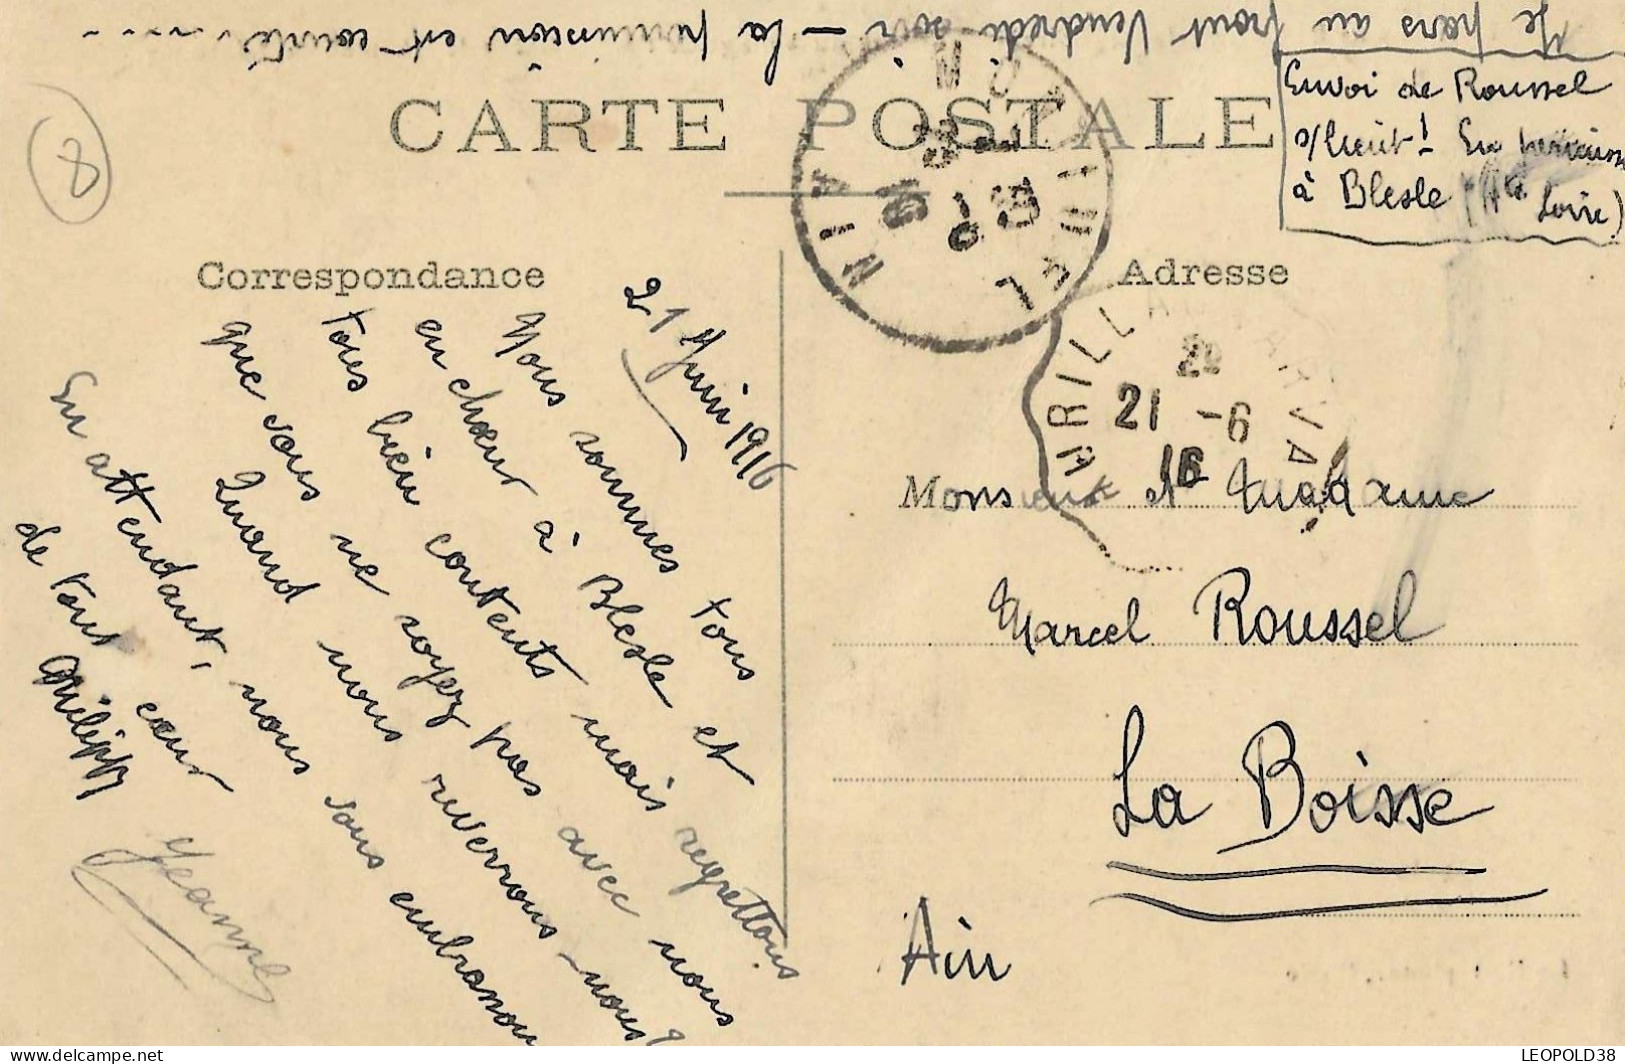 Je pars au front Vendredi soir – la permission est courte.....
CARTE POSTALE
8
Envoi de Roussel
s/Lieut! En permission
à Blesle (Hte Loire)
MONTLUEL
AIN
Correspondance
Adresse
21
-6
16
21 Juin 1916
Nous sommes tous
en chœur à Blesle et
tous bien contents mais regrettons
que vous ne soyez pas avec nous
Quand nous reverrons-nous?
En attendant, nous vous embrassons
de tout cœur
Philipp
Jeanne
Monsieur et Madame
Marcel Roussel
La Boisse
Ain
LEOPOLD38